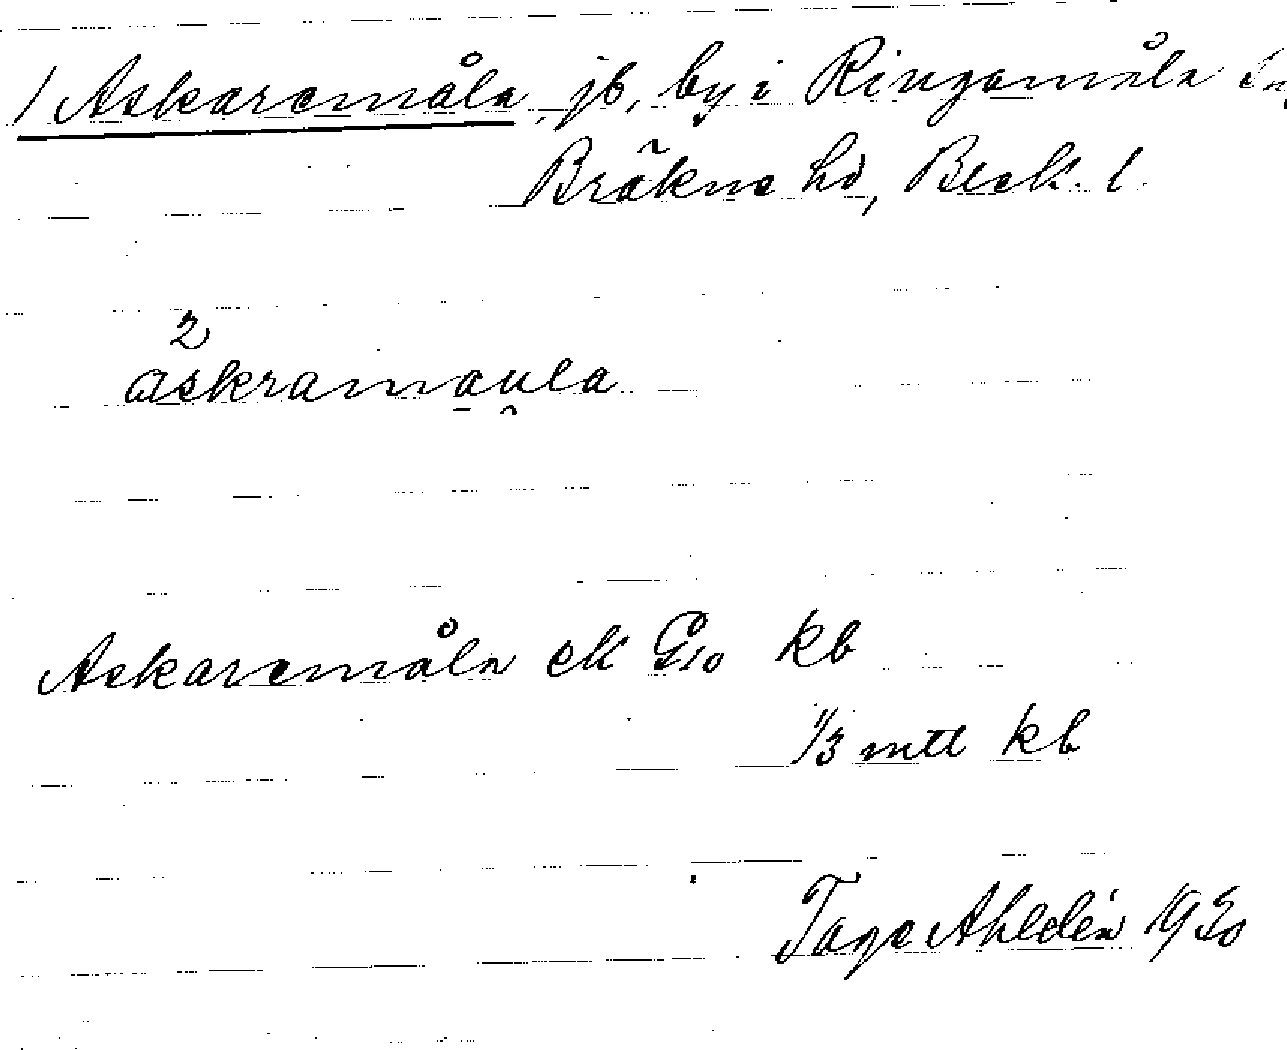 1 Askaremåla, jb, by i Ringamåla sn,
Bräkne hd, Blek. l.
2
askramaula
Askaremåla ek G10 kb
1/3 mtl kb
Tage Ahldén 1930